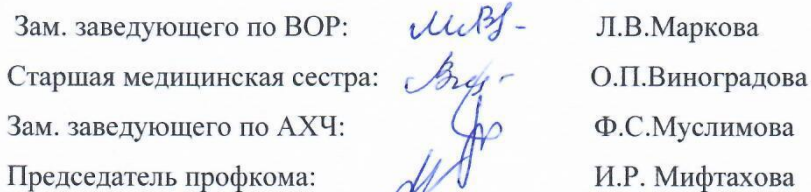 Зам. заведующего по ВОР: Л.В.Маркова
Старшая медицинская сестра: О.П.Виноградова
Зам. заведующего по АХЧ: Ф.С.Муслимова
Председатель профкома: И.Р. Мифтахова